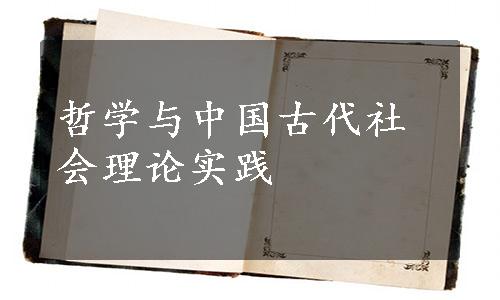 哲学与中国古代社
会理论实践